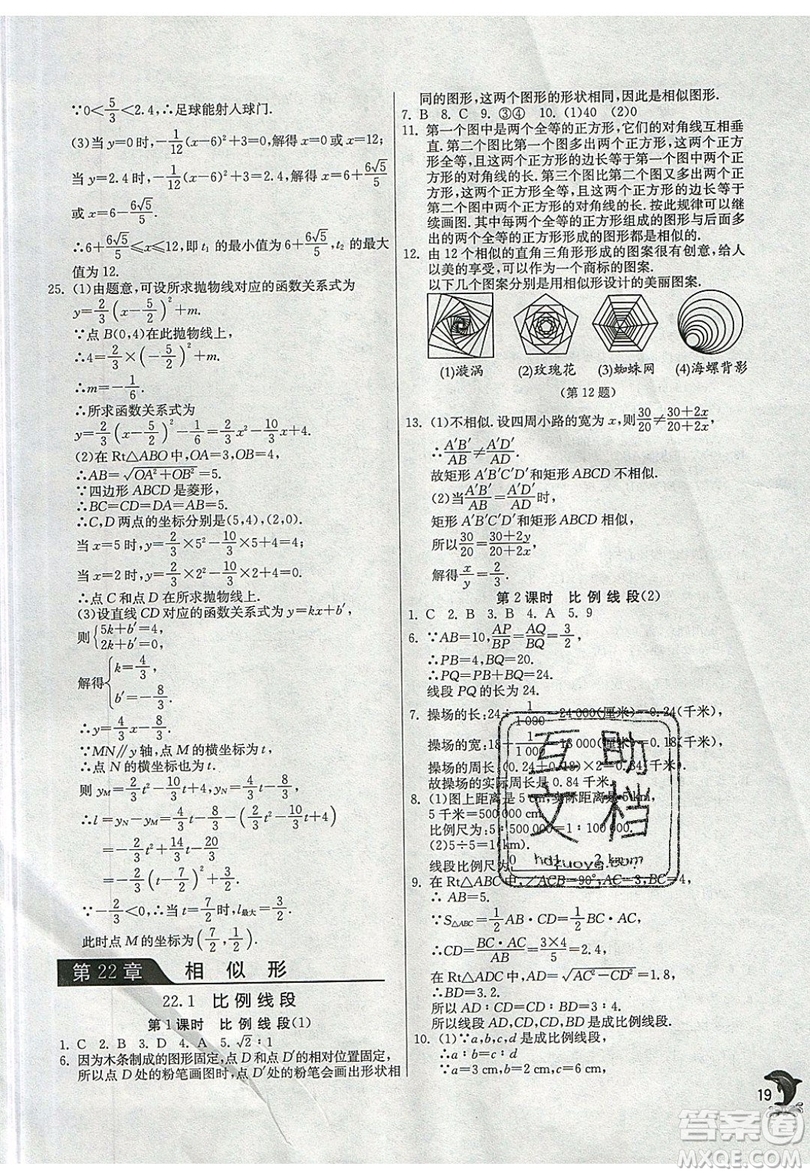 ∵0<5/3<2.4,∴足球能射入球门.
(3)当y=0时,-1/12(x-6)²+3=0,解得x=0或x=12;
当y=2.4时,-1/12(x-6)²+3=0,解得x=6+6√5/5
或x=6-6√5/5.
∴6+6√5/5≤x≤12,即t₁的最小值为6+6√5/5,t₂的最大
值为12.
25. (1)由题意,可设所求抛物线对应的函数关系式为
y=2/3(x-5/2)²+m.
∵点B(0,4)在此抛物线上,
∴4=2/3×(-5/2)²+m.
∴m=-1/6.
∴所求函数关系式为
y=2/3(x-5/2)²-1/6=2/3x²-10/3x+4.
(2)在Rt△ABO中,OA=3,OB=4,
∴AB=√OA²+OB²=5.
∵四边形ABCD是菱形,
∴BC=CD=DA=AB=5.
∴C,D两点的坐标分别是(5,4),(2,0).
当x=5时,y=2/3×5²-10/3×5+4=4;
当x=2时,y=2/3×2²-10/3×2+4=0,
∴点C和点D在所求抛物线上.
(3)设直线CD对应的函数关系式为y=kx+b′,
则{5k+b′=4,
2k+b′=0,
解得{k=4/3,
b′=-8/3.
∴y=4/3x-8/3.
∵MN∥y轴,点M的横坐标为t,
∴点N的横坐标为t.
则y_M=2/3t²-10/3t+4,y_N=4/3t-8/3,
∴l=y_N-y_M=4/3t-8/3-(2/3t²-10/3t+4)
=-2/3t²+14/3t-20/3
=-2/3(t-7/2)²+3/2.
∵-2/3<0,∴当t=7/2时,l最大=3/2,
此时点M的坐标为(7/2,1/2).
第22章 相似形
22.1 比例线段
第1课时 比例线段(1)
1. C 2. B 3. D 4. A 5. √2∶1
6. 因为木条制成的图形固定,点D和点D′的相对位置固定,
所以点D处的粉笔画图时,点D′处的粉笔会画出形状相
同的图形,这两个图形的形状相同,因此是相似图形.
7. B 8. C 9. ③④ 10. (1)40 (2)0
11. 第一个图中是两个全等的正方形,它们的对角线互相垂
直.第二个图比第一个图多出两个正方形,这两个正方形
全等,且这两个正方形的边长等于第一个图中两个正方
形的对角线的长.第三个图比第二个图又多出两个正方
形,这两个正方形全等,且这两个正方形的边长等于第二
个图中两个大正方形的对角线的长.按此规律可以继续
续画图.图中的两个全等的正方形组成的图形与多出
的两个全等的正方形组成的图形都是相似的.
12. 由12个相似的直角三角形形成的图案很有创意,给人
以美的享受,可以作为一个商标的图案.
以下几个图案分别是用相似形设计的美丽图案.
(1)漩涡 (2)玫瑰花 (3)蜘蛛网 (4)海螺背影
(第12题)
13. (1)不相似.设四周小路的宽为x,则30/20≠30+2x/20+2x,
∴A′B′/AB≠A′D′/AD.
故矩形A′B′C′D′和矩形ABCD不相似.
(2)当A′B′/AB=A′D′/AD时,
矩形A′B′C′D′和矩形ABCD相似,
所以30/20=30+2y/20+2x.
解得x/y=2/3.
第2课时 比例线段(2)
1. C 2. B 3. B 4. A 5. 9
6. ∵AB=10,AP/BP=AQ/BQ=3/2,
∴PB=4,BQ=20.
∴PQ=PB+BQ=24.
线段PQ的长为24.
7. 操场的长:24÷1/1 000=24 000(厘米)=0.24(千米),
操场的宽:18÷1/1 000
操场的周长(0.24+0.18)×2=0.84(千米).
故操场的实际周长是0.84千米.
8. (1)图上距离是5 cm,实际距离是5
5千米=500 000 cm,
比例尺为:5∶500 000=1∶100 000.
(2)5÷5=1.
线段比例尺为
9. 在Rt△ABC中,∠ACB=90°,AC=4,BC=3,
∴AB=5.
∵S△ABC=1/2AB·CD=1/2BC·AC,
∴CD=BC·AC/AB=3×4/5=2.4.
在Rt△ADC中,AD=√AC²-CD²=3.2,
所以BD=5-3.2=1.8.
所以线段AD,CD,CD,BD是成比例线段.
10. (1)∵a,b,c,d是成比例线段,
∴a∶b=c∶d.
∵a=3 cm,b=2 cm,c=6 cm,
互助
文档
hdzuoye.com
19
答案圈
MXQE.COM